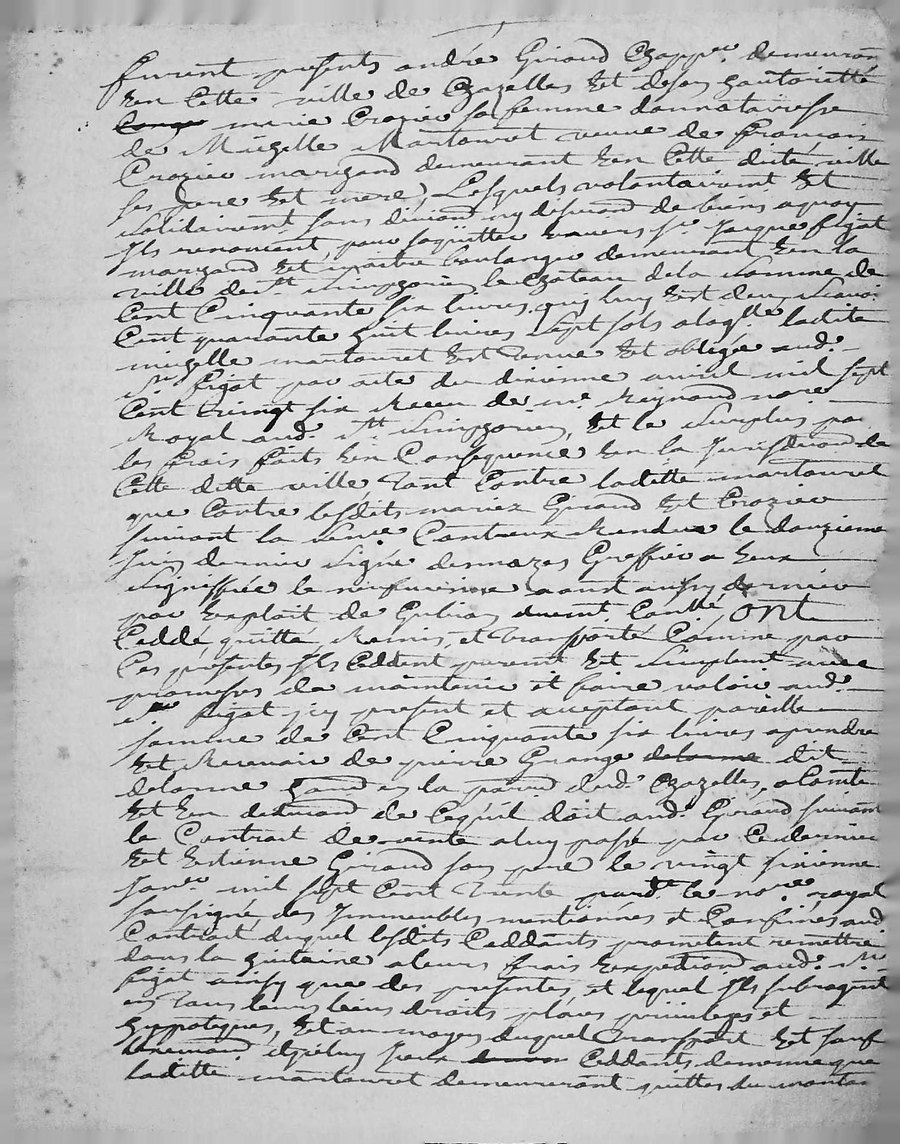 furent presents andré Giraud Chapper demeurant
En cette ville de Chazelles Et de son hautorietté
marie Crozier sa femme donnatairesse
de Michelle Martouret veuve de francois
Crozier marchand demeurant En Cette ditte ville
ses pere Et mere, Lesquels volontairemt Et
solidairemt sans division ny discution de biens a quoy
Ils renoncent, pour saquitter Envers sr Jacque pigat
marchand Et maitre boulanger demeurant En la
ville de st simphorien le Chateau de la somme de
Cent Cinquante six livres quy luy Est deu, scavoir
Cent quarante huit livres sept sols a laqlle laditte
michelle martouret Est tenue Et obligée aud.
sr pigat par acte du dixieme avril mil sept
Cent vingt six Receu de me Reynaud nore
Royal aud. st simphorien, Et le surplus par
les frais faits En Consequence En la Jurisdiction de
Cette ditte ville, tant Contre laditte martouret
que Contre lesdits mariez Giraud Et Crozier
suivant la Rendue le douzieme
Juin dernier signé desmazes Greffier a Eux
signiffiée le aoust aussy dernier
par Exploit de duemt Contlé, ont
Ceddé, quitté Remis, et transporté Comme par
Ces presentes Ils Ceddent puremt Et simplemt avec
promesses de maintenir et faire valoir aud.
sr Pigat, icy present et acceptant pareille
somme de Cent Cinquante six livres a prendre
Et Recevoir de pierre Grange delorme dit
delorme en la parroisse dud. Chazelles, a Compte
Et En deduction de Cequil doit aud. Giraud suivant
le Contrat de vente a luy passé par Ce dernier
Et Estienne Giraud son pere le vingt sixieme
Janvr mil sept Cent trente pardt le nore royal
soussigné, des Immeubles mentionnés et Confinés aud.
Contrat duquel lesdits Ceddants promettent remettre
dans la huitaine a leurs frais Expedition aud. sr
Pigat ainsy que des presentes, et lequel Ils subrogent
en tous leurs biens droits, places, privileges et
hyppoteques, Et au moyen duquel transport Et sauf
Ceddants, demesme que
laditte martouret demeureront quittes du montant